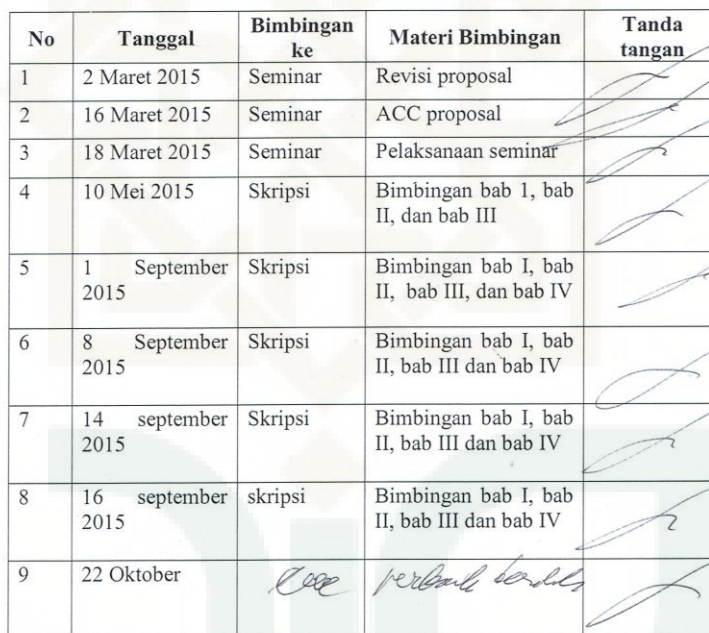 No Tanggal Bimbingan ke Materi Bimbingan Tanda tangan
1 2 Maret 2015 Seminar Revisi proposal
2 16 Maret 2015 Seminar ACC proposal
3 18 Maret 2015 Seminar Pelaksanaan seminar
4 10 Mei 2015 Skripsi Bimbingan bab 1, bab
II, dan bab III
5 1 September Skripsi Bimbingan bab I, bab
2015 II, bab III, dan bab IV
6 8 September Skripsi Bimbingan bab I, bab
2015 II, bab III dan bab IV
7 14 september Skripsi Bimbingan bab I, bab
2015 II, bab III dan bab IV
8 16 september skripsi Bimbingan bab I, bab
2015 II, bab III dan bab IV
9 22 Oktober